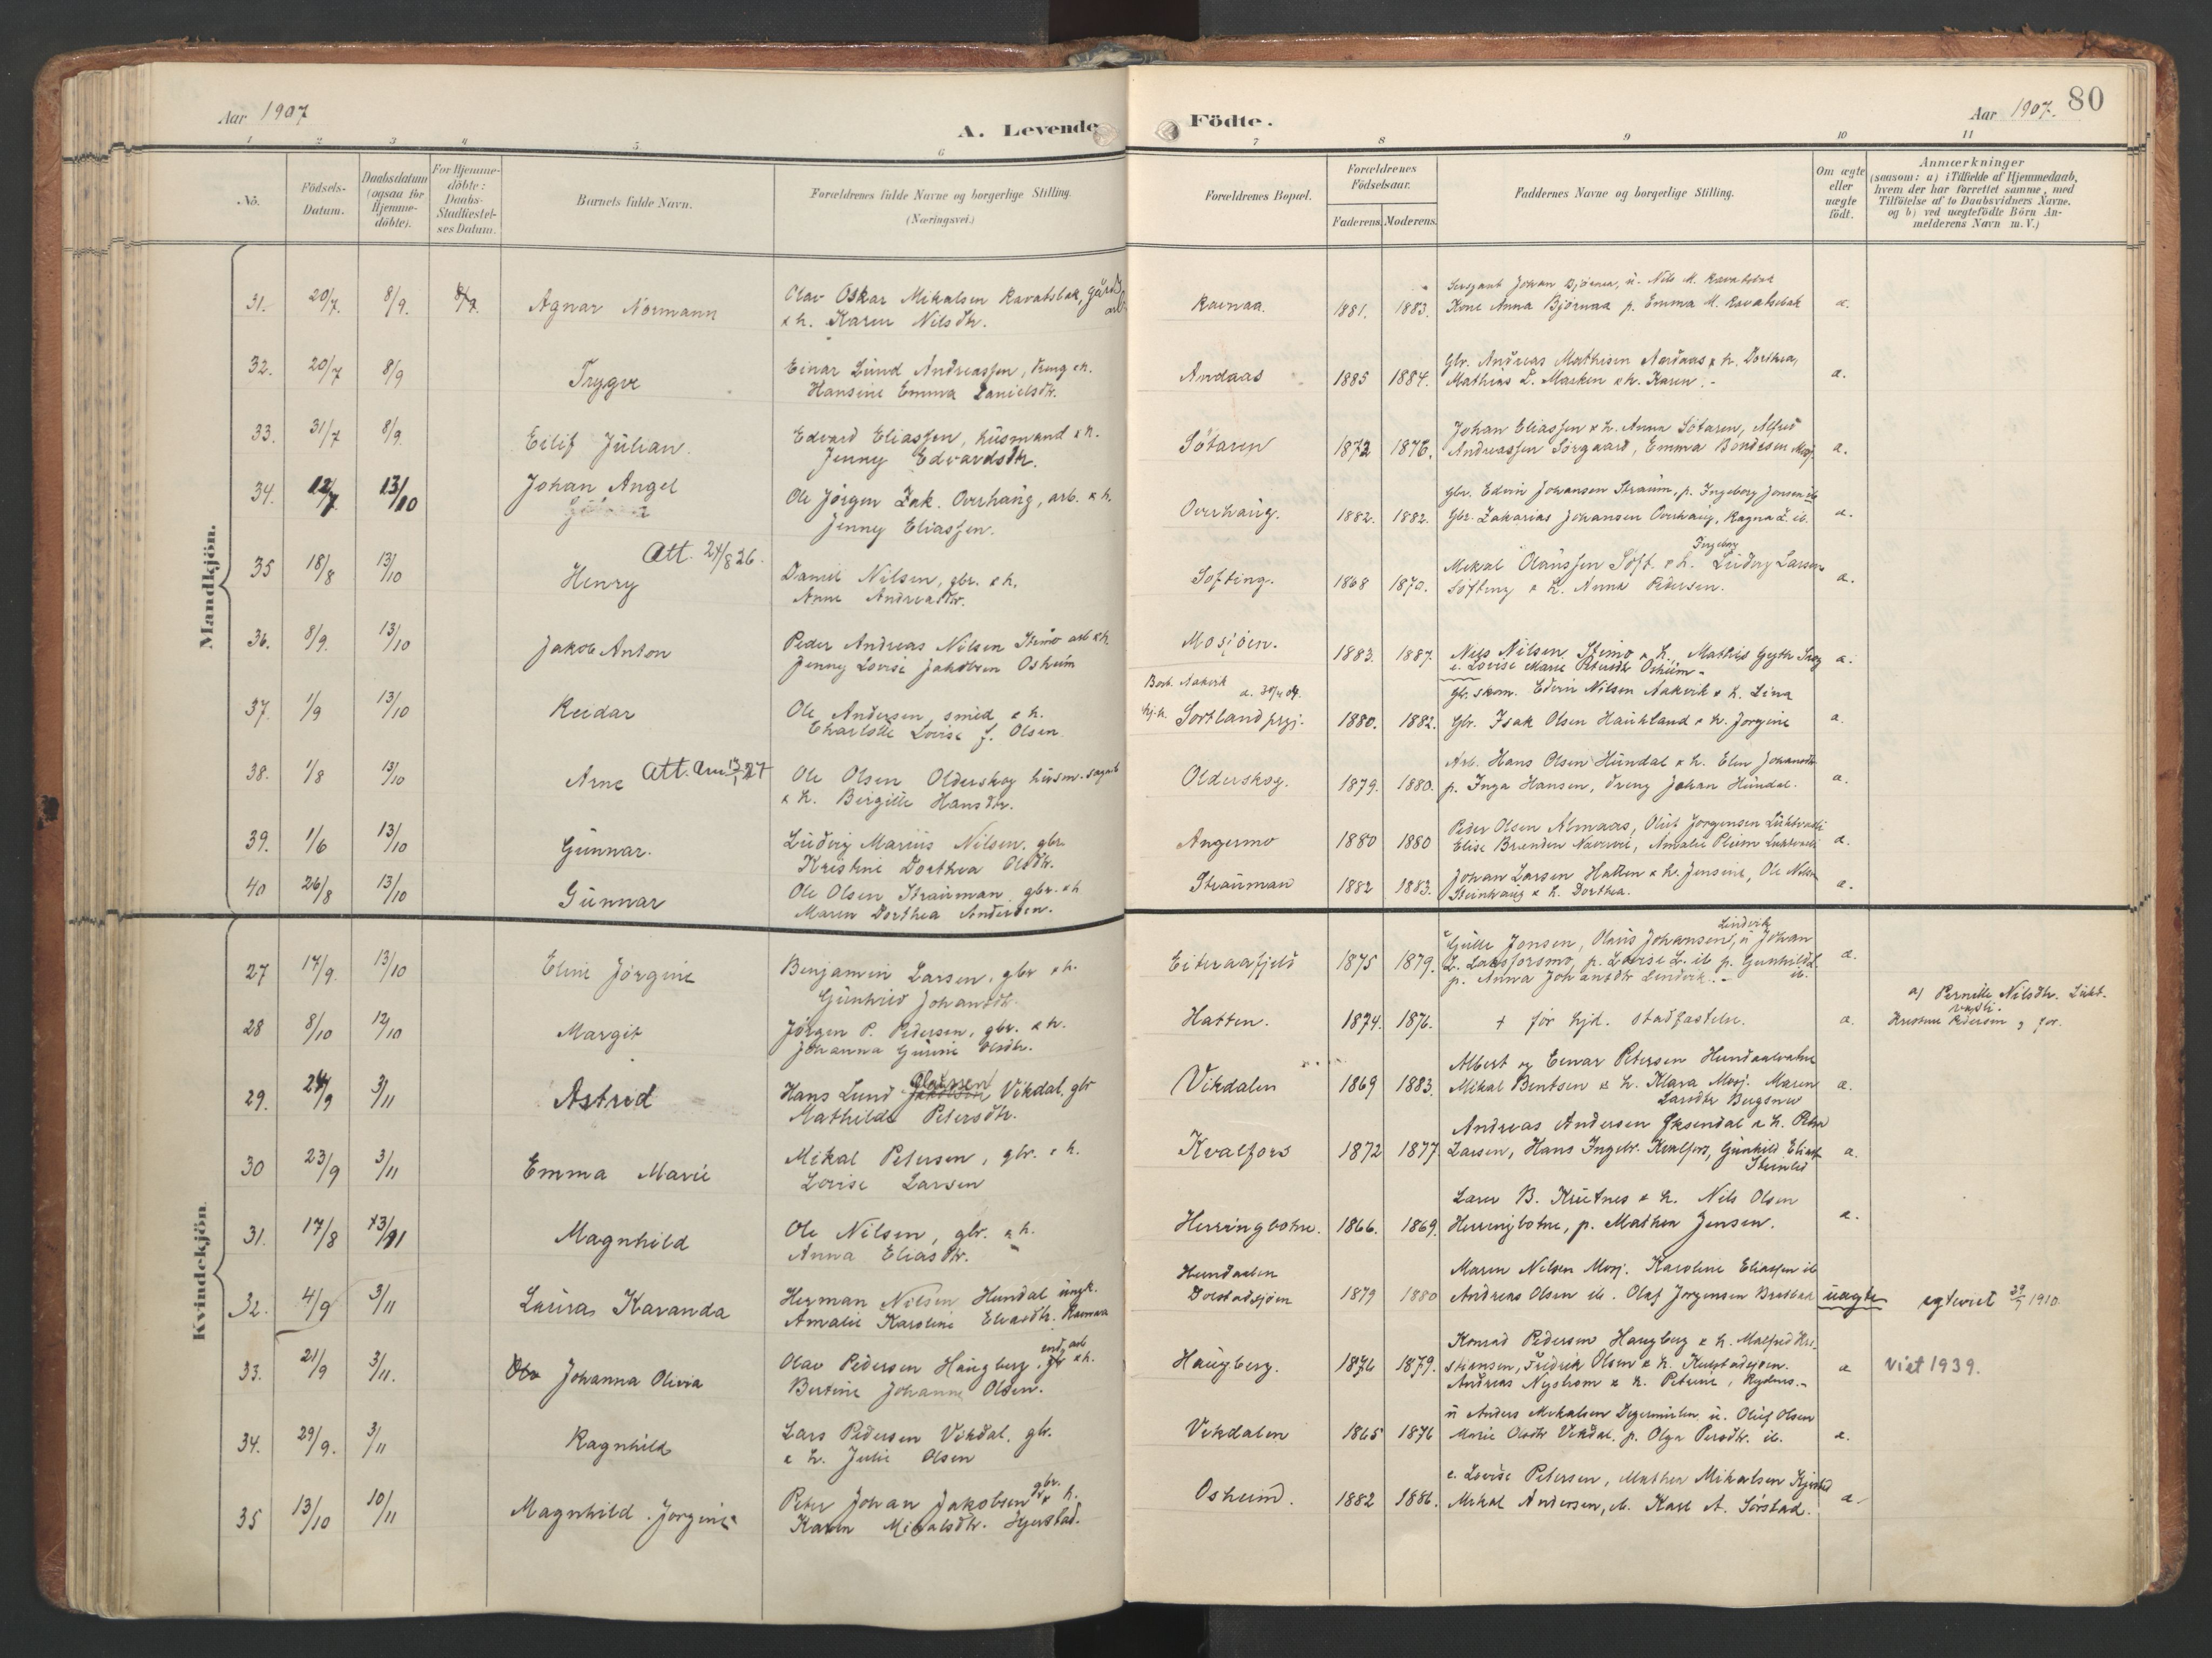 Aar 1907
A. Levende
Födte.
Aar 1907.
80
1 2 3 4 5 6 7 8 9 10 11
No.
Födsels-Datum.
Daabsdatum (ogsaa for Hjemme-döbte).
For Hjemme-döbte: Daabs-Stadfæstel-ses Datum.
Barnets fulde Navn.
Forældrenes fulde Navne og borgerlige Stilling. (Næringsvei.)
Forældrenes Bopæl.
Forældrenes Födselsaar.
Faderens. Moderens.
Faddernes Navne og borgerlige Stilling.
Om ægte eller uægte födt.
Anmærkninger (saasom: a) i Tilfælde af Hjemmedaab, hvem der har forrettet samme, med Tilföielse af to Daabsvidners Navne. og b) ved uægtefödte Börn An-melderens Navn m. V.)
Mandkjön.
31. 20/7. 8/9. Agnar Normann
Olav Oskar Mikalsen Ravatsbak, gårds arb
& h. Karen Nilsdtr.
Ravnaa. 1881. 1883.
Sersjant Johan Bjórnaa, u. Nils M. Ravatsbak
Kone Anna Bjórnaa p. Emma M. Ravatsbak
æ.
32. 20/7 8/9 Trygve
Einar Lund Andreassen, dreng & h.
Hansine Emma Danielsdtr.
Andaas 1885 1884.
Gbr. Andreas Mathisen Andaas & h. Dorthea,
Mathias L. Marken & h. Karen. -
æ.
33. 31/7 8/9. Eilif Julian.
Edvard Eliassen, husmand & h.
Jenny Edvardsdtr.
Sötaren 1872 1876.
Johan Eliassen & h. Anna Sótaren, Alfred
Andreassen Sörgaard, Emma Bondesen Mosj.
æ.
34. 12/7 13/10 Johan Angel
Ole Jórgen Zak. Overhaug, arb. & h.
Jenny Eliassen.
Overhaug. 1882. 1882.
Gbr. Edvin Johansen Straum, p. Ingeborg Jensen ib
Gbr. Zakarias Johansen Overhaug, Ragna Z. ib.
æ.
35 18/8 13/10 Henry Att. 24/8 26.
Daniel Nilsen, gbr. & h.
Anne Andreasdtr.
Softing. 1868 1870.
Mikal Olaussen Soft. & h. Ingeborg Ludvig Larsen
Söfting & h. Anna Pedersen.
æ.
36. 8/9. 13/10 Jakob Anton
Peder Andreas Nilsen Stimo arb & h.
Jenny Lovise Jakobsen Osheim
Mosjöen. 1883. 1887.
Nils Nilsen Stimo & h.
e. Lovise Marie Petersdtr Osheim -
æ.
37. 1/9 13/10 Reidar
Ole Andersen, smed & h.
Charlotte Lovise f. Olsen
Sortland prgj. 1880. 1882.
Gbr. skom. Edvin Nilsen Aakvik & h. Lina
Gbr. Isak Olsen Haukland & h. Jorgine
æ.
38. 1/8 13/10 Arne Att. 27
Ole Olsen Olderskog husm. sagarb
& h. Birgitte Hansdtr.
Olderskog. 1879. 1880.
Arb. Hans Olsen Hundal & h. Elen Johansdtr
p. Inga Hansen, dreng Johan Hundal.
æ.
39. 1/6 13/10 Gunnar.
Ludvig Marius Nilsen, gbr.
Kristine Dorthea Olsdtr.
Angermo 1880 1880
Peder Olsen Almaas, Oluf Jorgensen
æ.
40 26/8 13/10 Gunnar
Ole Olsen Strauman, gbr. & h
Maren Dorthea Andersen.
Strauman 1882 1883.
Johan Larsen Hatten & h. Jensine, Ole Nilsen
Steinhaug & h. Dorthea.
æ.
Kvindekjön.
27 17/9. 13/10 Eline Jörgine
Benjamin Larsen, gbr & h.
Gunhild Johansdtr.
Eiteraafjeld 1875 1879.
Gulle Jonsen, Olaus Johansen, Lindvik u Johan
L. Laksforsmo, p. Lovise L. ib p. Gunhild L. ib.
p. Anna Johansdtr Lindvik. -
æ.
28 8/10 12/10 Margit
Jórgen P. Pedersen, gbr. & h.
Johanna Gurine Olsdtr.
Hatten. 1874. 1876.
+ för hjd. stadfæstelse.
æ.
a) Pernille Nilsdtr.
Kristine Pedersen
29. 24/9 3/11 Astrid
Hans Lund Olaussen Vikdal, gbr
Mathilde Petersdtr.
Vikdalen 1869 1883.
Albert og Einar Petersen Hundaalvatne
Mikal Bentsen & h. Klara Mosj. Maren
Larsdtr
æ.
30 23/9 3/11 Emma Marie
Mikal Petersen, gbr. & h.
Lovise Larsen
Kvalfors 1872 1877
Andreas Andersen Øksendal & h. Petra
Larsen, Hans Ingebr. Kvalfors, Gunhild Elias
æ.
31. 17/8 3/11 Magnhild
Ole Nilsen, gbr. & h.
Anna Eliasdtr.
Herringbotn. 1866. 1869.
Lars B. Krutnes & h. Nils Olsen
Herringbotne, p. Mathea Jensen.
æ.
32. 4/9 3/11 Laura Karanda
Herman Nilsen Hundal ungk.
Amalie Karoline Eliasdtr. Ravnaa
Hundaalen
Dolstadsjöen 1879 1880
Maren Nilsen Mosj. Karoline Eliassen ib
Andreas Olsen ib. Olaf Jorgensen
uægte
egteviet 1910.
33. 21/9 3/11. Johanna Olivia
Olav Pedersen Haugberg, gbr & h.
Bertine Johanne Olsen.
Haugberg. 1876 1879.
Konrad Pedersen Haugberg & h. Malfrid Kri-
stiansen, Fredrik Olsen & h. Kulstadsjøen.
Andreas Nystrom & h. Petrine, Rynes.-
æ
viet 1939.
34. 29/9. 3/11 Ragnhild
Lars Pedersen Vikdal, gbr.
& h. Julie Olsen
Vikdalen 1865 1876
u Anders Mikalsen u. Oluf Olsen
Marie Olsdtr Vikdal, p. Olga Persdtr. ib.
æ.
35 13/10 10/11 Magnhild Jorgine
Peter Johan Jakobsen gbr. & h.
Karen Mikalsdtr. Hjerstad.
Osheim. 1882 1886.
e. Lovise Petersen, Mathea Mikalsen
Mikal Andersen, ib. Karl A. Sörstad.
æ